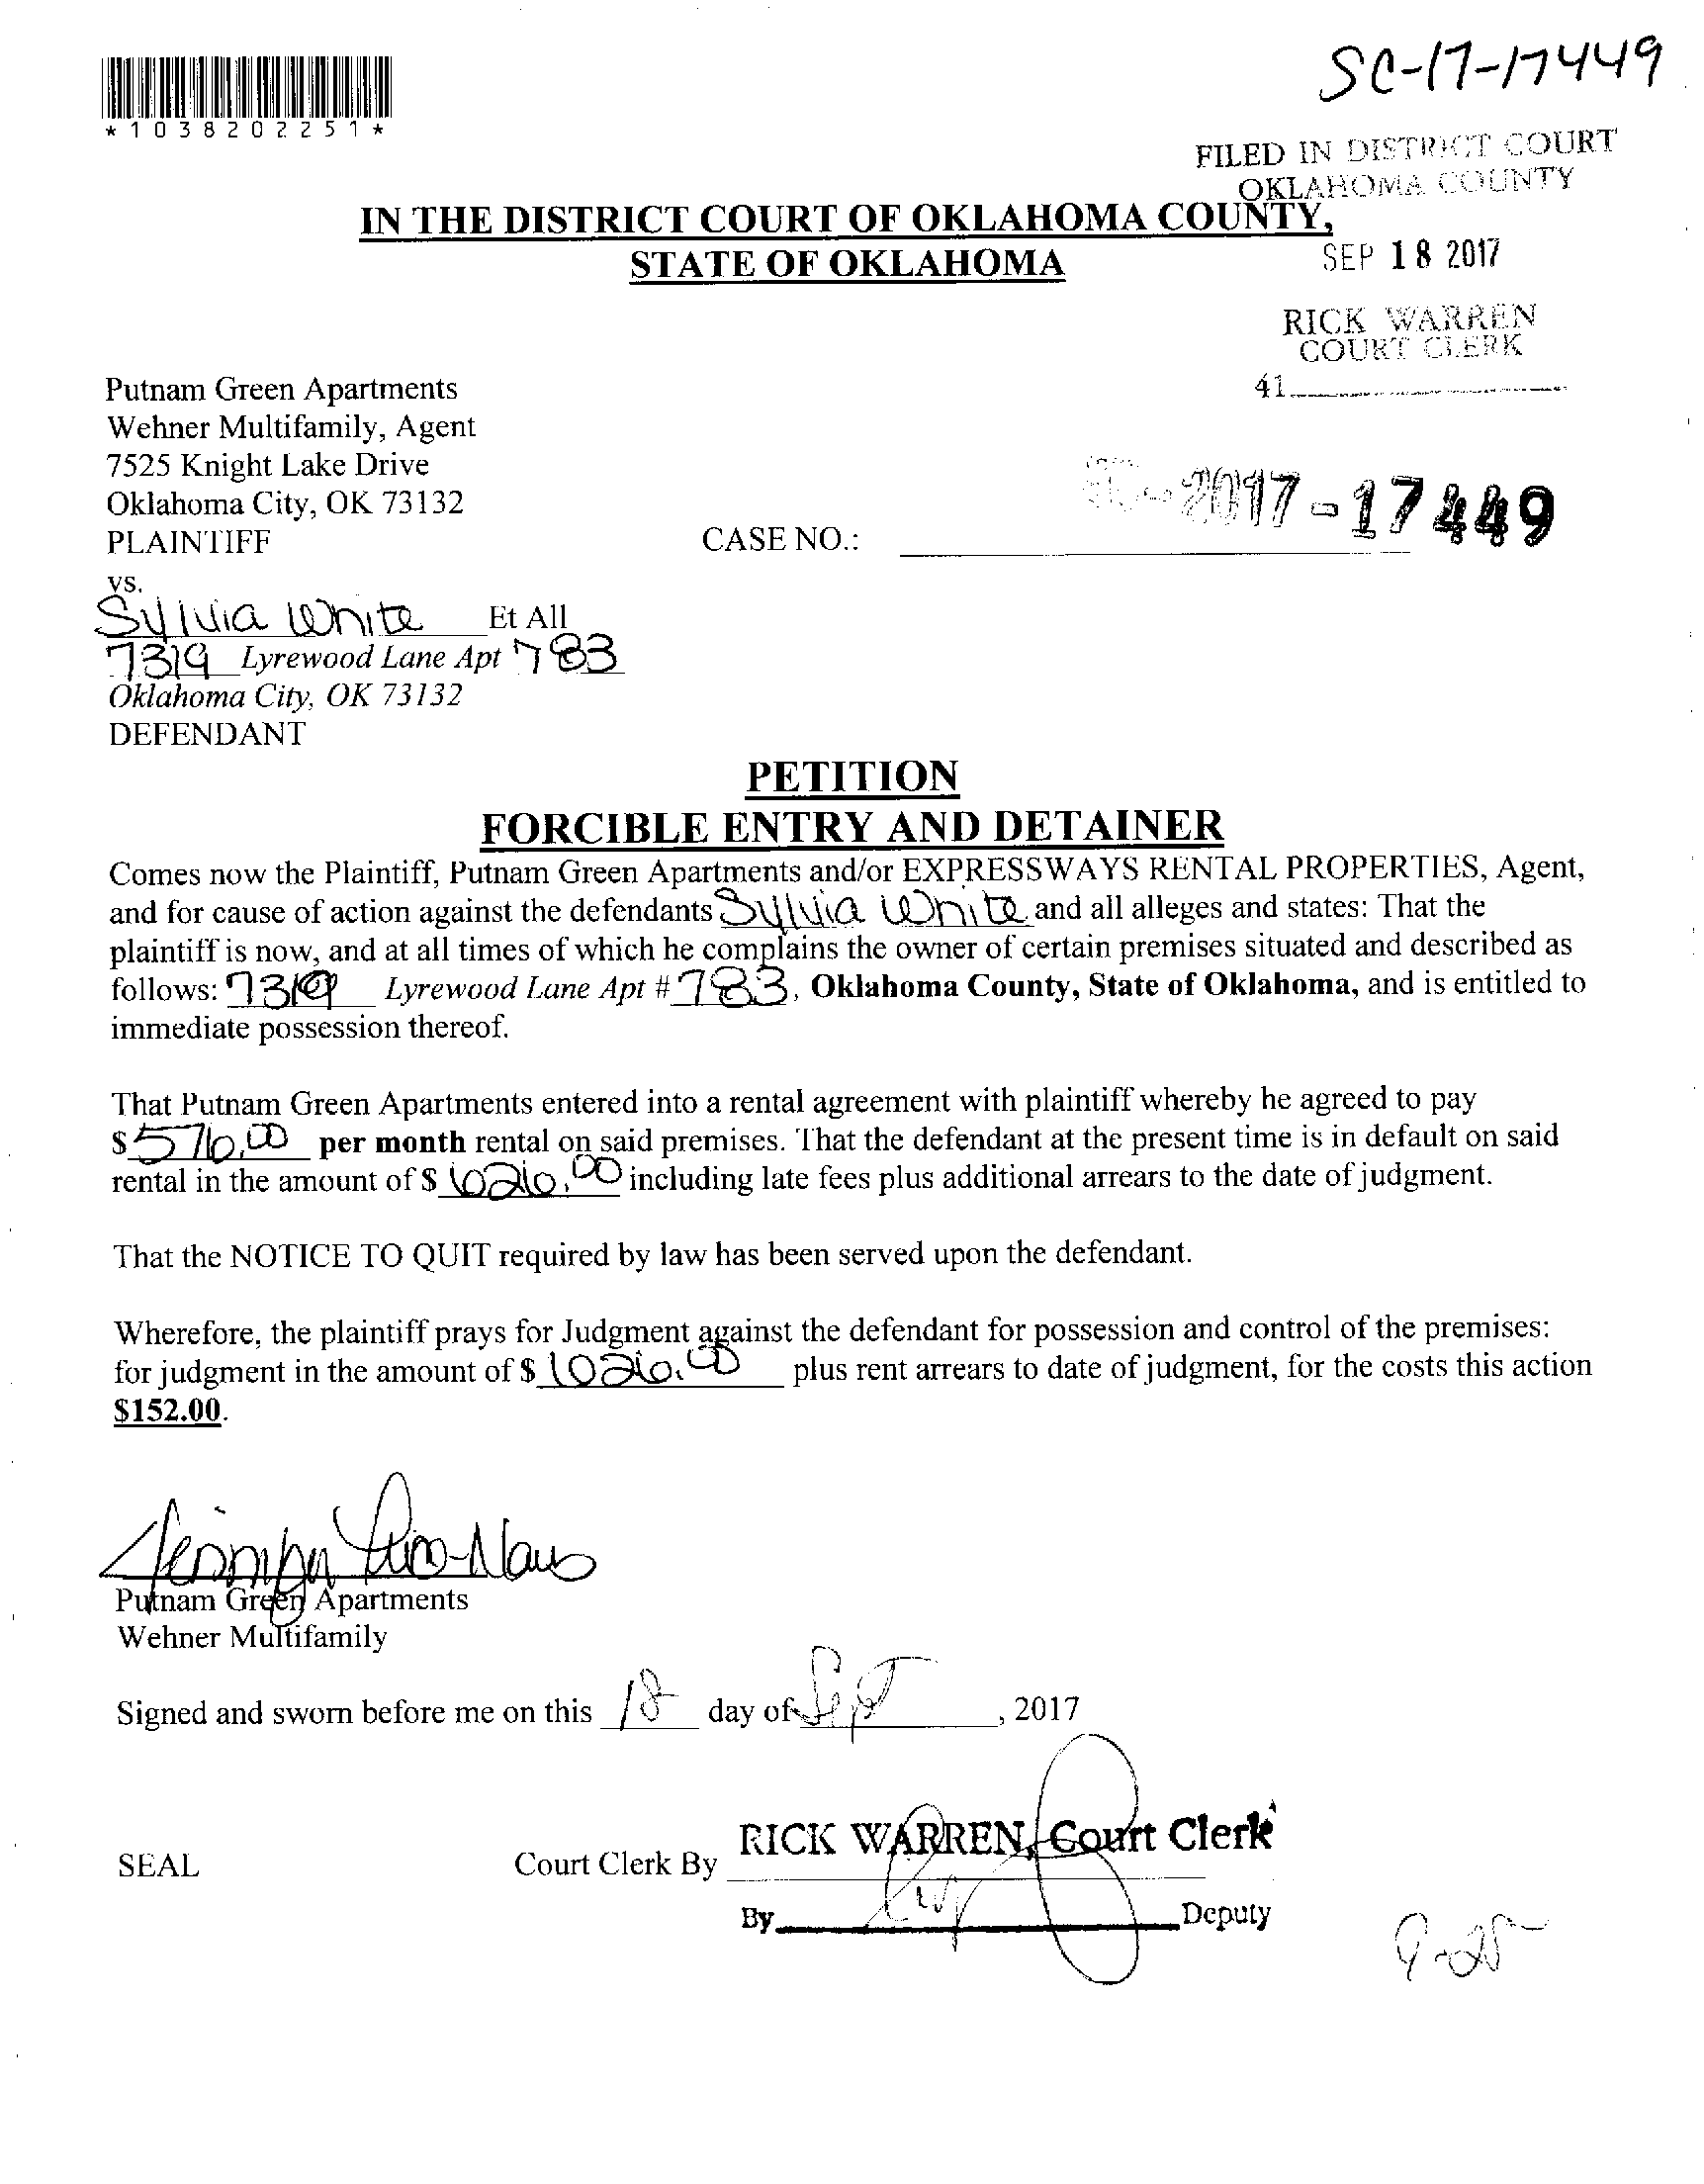 SC-17-17449
*1038202251*
FILED IN DISTRICT COURT
OKLAHOMA COUNTY
IN THE DISTRICT COURT OF OKLAHOMA COUNTY,
STATE OF OKLAHOMA
SEP 18 2017
RICK WARREN
COURT CLERK
41
Putnam Green Apartments
Wehner Multifamily, Agent
7525 Knight Lake Drive
Oklahoma City, OK 73132
PLAINTIFF
CASE NO.: -2017-17449
vs.
Sylvia White Et All
7319 Lyrewood Lane Apt 783
Oklahoma City, OK 73132
DEFENDANT
PETITION
FORCIBLE ENTRY AND DETAINER
Comes now the Plaintiff, Putnam Green Apartments and/or EXPRESSWAYS RENTAL PROPERTIES, Agent,
and for cause of action against the defendants Sylvia White and all alleges and states: That the
plaintiff is now, and at all times of which he complains the owner of certain premises situated and described as
follows: 7319 Lyrewood Lane Apt # 783, Oklahoma County, State of Oklahoma, and is entitled to
immediate possession thereof.
That Putnam Green Apartments entered into a rental agreement with plaintiff whereby he agreed to pay
$ 576.00 per month rental on said premises. That the defendant at the present time is in default on said
rental in the amount of $ 1026.00 including late fees plus additional arrears to the date of judgment.
That the NOTICE TO QUIT required by law has been served upon the defendant.
Wherefore, the plaintiff prays for Judgment against the defendant for possession and control of the premises:
for judgment in the amount of $ 1026.00 plus rent arrears to date of judgment, for the costs this action
$152.00.
Putnam Green Apartments
Wehner Multifamily
Signed and sworn before me on this 18 day of Sept, 2017
RICK WARREN, Court Clerk
SEAL Court Clerk By
By Deputy
9-25